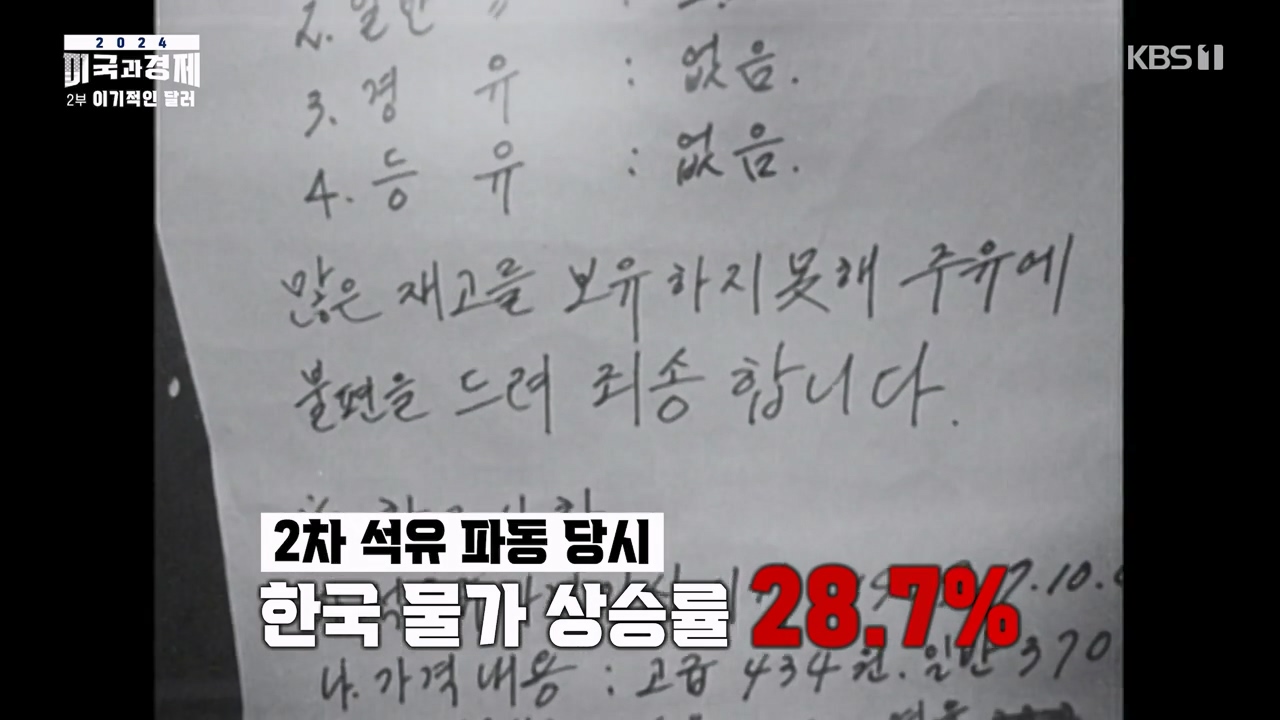 2024
미국과경제
2부 이기적인 달러
KBS1
2. 일반 〃 :
3. 경 유 : 없음.
4. 등 유 : 없음.
많은 재고를 보유하지못해 주유에
불편을 드려 죄송 합니다.
2차 석유 파동 당시
한국 물가 상승률 28.7%
나. 가격내용 : 고급 434원. 일반 370